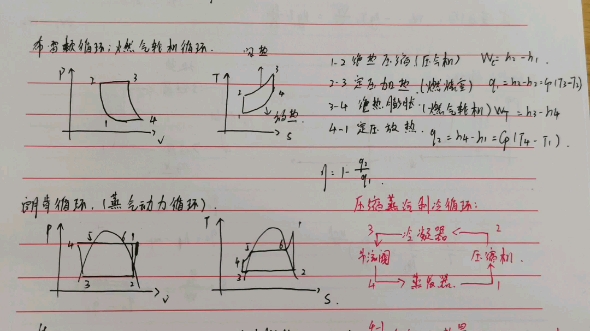 布雷顿循环：燃气轮机循环.
吸热
P
2 3
1 4
V
T
3
2 4
1
放热
S
1-2 绝热压缩(压气机) Wc = h2-h1.
2-3 定压加热.(燃烧室) q1=h3-h2=Cp(T3-T2)
3-4 绝热膨胀.(燃气轮机) WT = h3-h4
4-1 定压放热. q2=h4-h1=Cp(T4-T1).
η=1-q2/q1.
朗肯循环.(蒸气动力循环).
P
4 5 6 1
3 2
V
T
1
5 6
4
3 2
S.
压缩蒸汽制冷循环:
3 冷凝器 2
节流阀 压缩机.
4 蒸发器 1